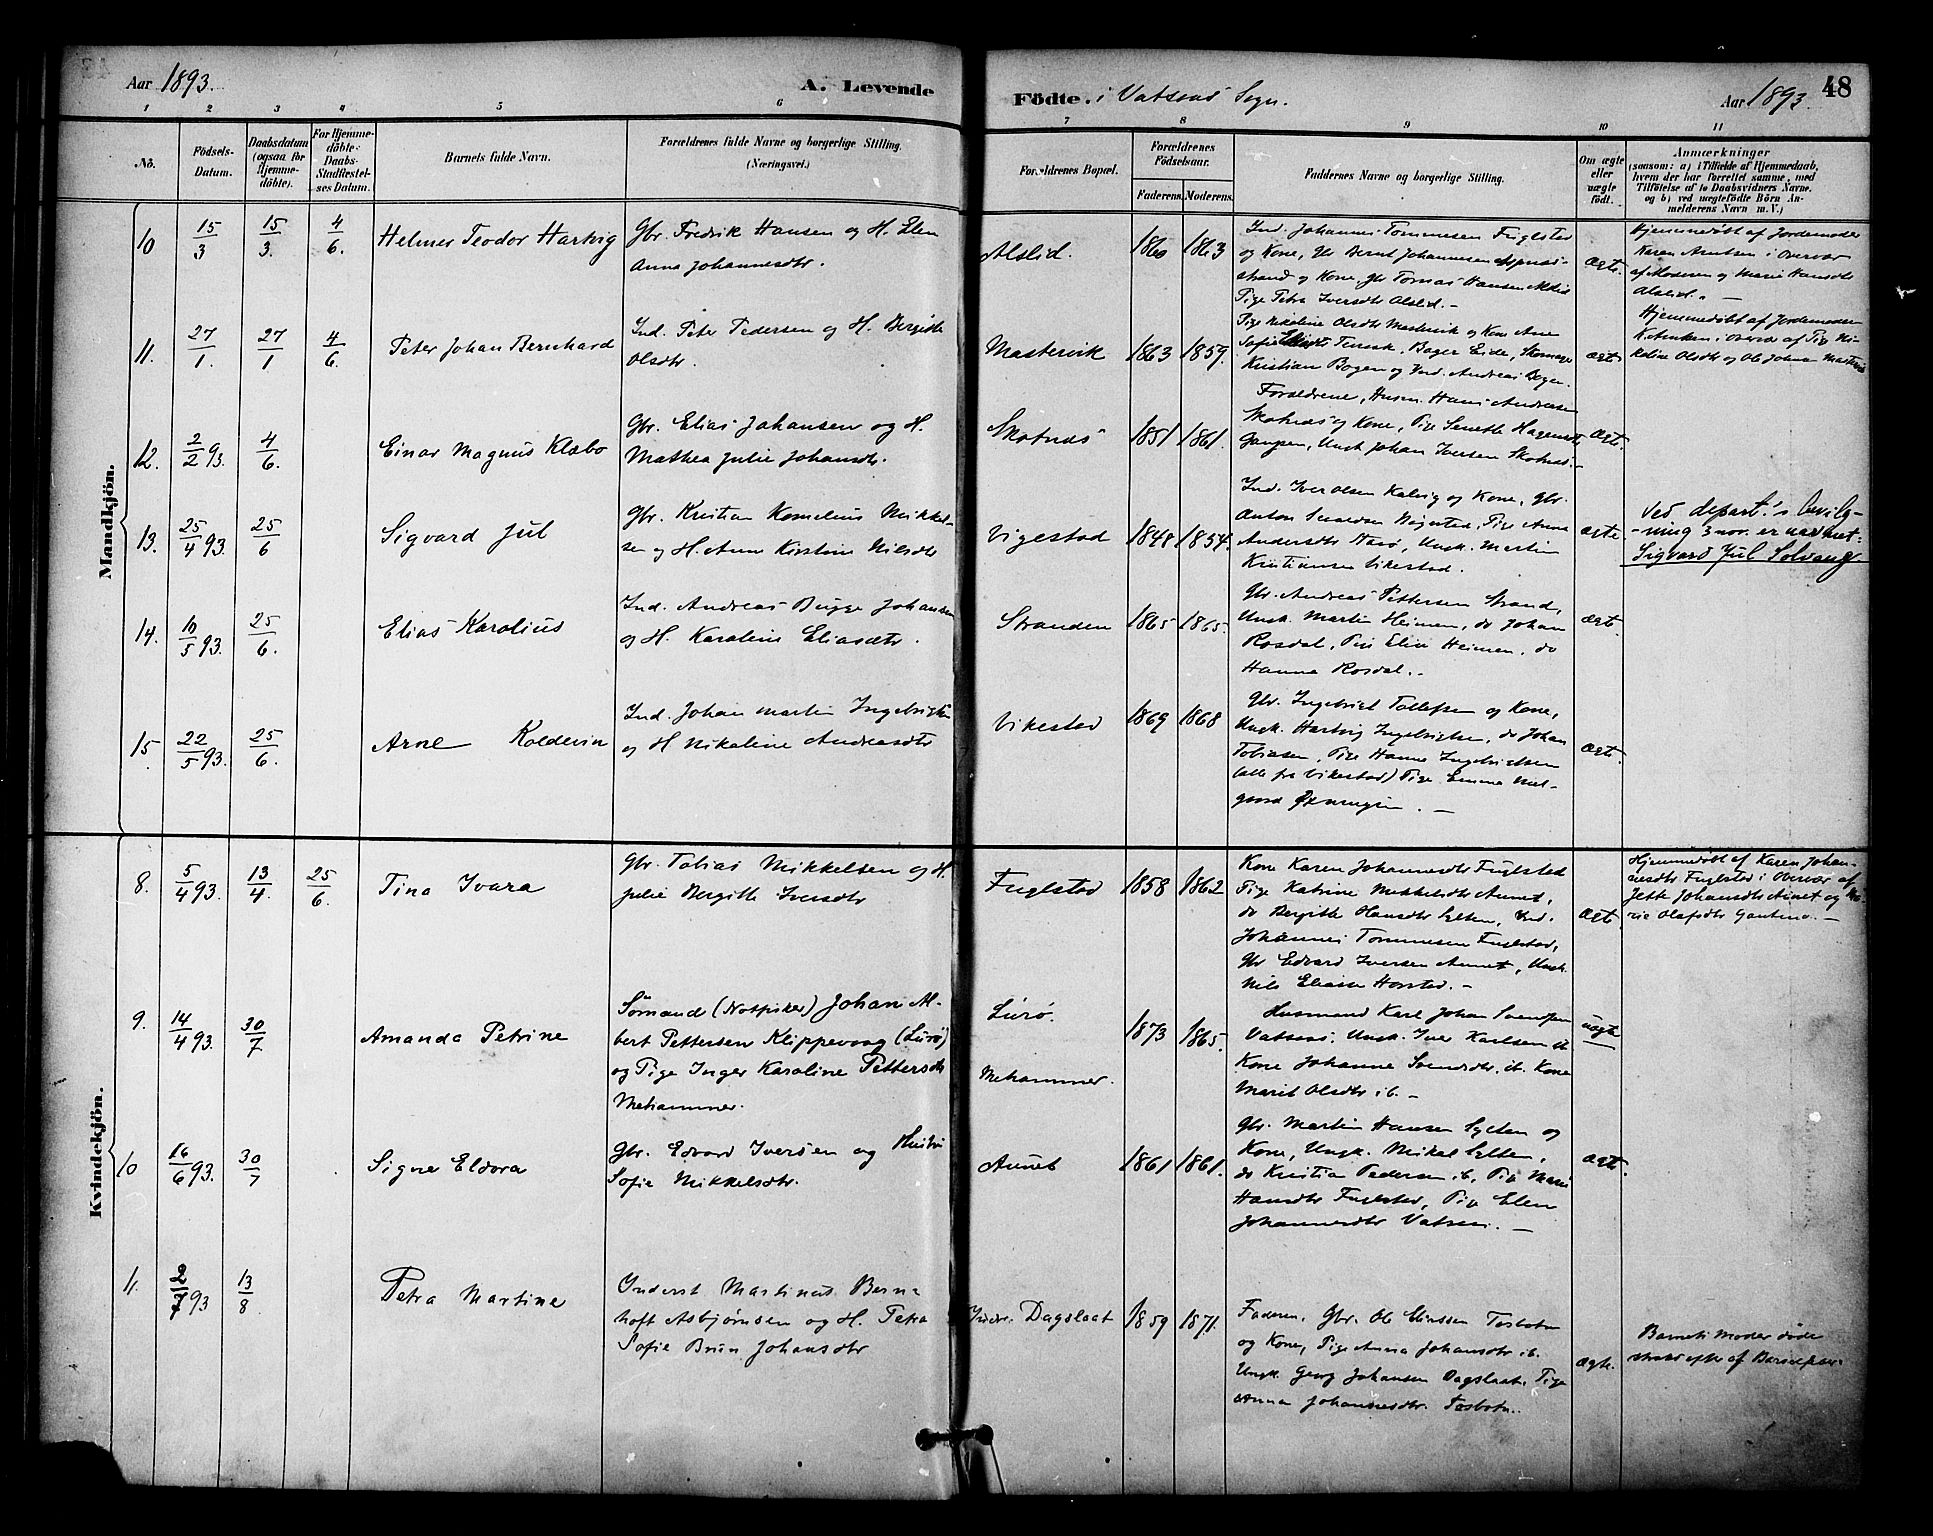 Aar 1893.
A. Levende
Födte. i Vatsens Sogn.
Aar 1893.
48
1 2 3 4 5 6 7 8 9 10 11
No.
Födsels-
Datum.
Daabsdatum
(ogsaa for
Hjemme-
döbte).
For Hjemme-
döbte:
Daabs-
Stadfæstel-
ses Datum.
Barnets fulde Navn.
Forældrenes fulde Navne og borgerlige Stilling.
(Næringsvei.)
Forældrenes Bopæl.
Forældrenes
Födselsaar.
Faderens. Moderens.
Faddernes Navne og borgerlige Stilling.
Om ægte
eller
uægte
født.
Anmærkninger
(saasom: a) i Tilfælde af Hjemmedaab,
hvem der har forrettet samme, med
Tilföielse af to Daabsvidners Navne,
og b) ved uægtefödte Börn An-
melderens Navn m. V.)
Mandkjön.
10
15/3
15/3.
4/6.
Helmer Teodor Hartvig
Gbr. Fredrik Hansen og H. Elen
Anna Johannesdtr.
Alslid.
1860 1863
Ind. Johannes Tommesen Fuglstad
og Kone, Gbr Bernt Johannesen
strand og Kone, Gbr Tomas Hansen Alslid
Pige Petra Iversdtr Alslid.
ægte.
Hjemmedøbt af Jordemoder
Karen Arntsen i Overvær
af Moderen og Marie Hansdtr
Alslid.
11.
27/1
27/1
4/6
Peter Johan Bernhard
Ind. Peter Pedersen og H. Bergitte
Olsdtr.
Mastervik
1863 1859.
Pige Nikoline Olsdtr Mastervik og Kone Ane
Sofie Teresk, Bager Eide, Skomager
Kristian Bogen og Ind. Andreas Bogen.
ægte
Hjemmedøbt af Jordemoder
i overvær af Pig Ni-
koline Olsdtr og Ole Johan Mastervik
12.
2/2 93.
4/6.
Einar Magnus Klæbo
Gbr. Elias Johansen og H.
Mathea Julie Johansdtr.
Skotnes
1851 1861.
Forældrene, Husm. Hans Andreasen
Skotnes og Kone, Pige
Ungk Johan Iversen Skotnes.
ægte.
13.
25/4 93.
25/6
Sigvard Jul
Gbr. Kristian Kornelius Mikkel-
sen og H. Ane Kirstine Nilsdtr
Vigestad
1848 1854.
Ind. Iver Olsen Kalvig og Kone, Gbr.
Anton Vigestad, Pige Anna
Andersdtr, Ungk. Martin
Kristiansen Vikestad.
ægte
Ved depart.'s bevilg-
-ning 3 nov. er navnet:
Sigvard Jul Solvang.
14.
10/5 93.
25/6.
Elias Karolius
Ind. Andreas Bugge Johansen
og H. Karoline Eliasdtr.
Stranden
1865 1865.
Gbr. Andreas Pettersen Strand,
Ungk. Martin Heimen, do Johan
Rosdal, Pige Eline Heimen, do
Hanna Rosdal.
ægte.
15
22/5 93.
25/6.
Arne Kolderin
Ind. Johan Martin Ingebrigtsen
og H Nikoline Andreasdtr
Vikestad
1869 1868
Gbr. Ingebrigt Tollefsen og Kone,
Ungk. Hartvig Ingebrigtsen, do Johan
Tobiasen, Pige Hanne Ingebrigtsen
(alle fra Vikestad) Pige Emma Mel-
gaard Øxningen.
ægte.
Kvindekjön.
8.
5/4 93.
13/4.
25/6.
Tina Ivara
Gbr. Tobias Mikkelsen og H.
Julie Bergitte Iversdtr
Fuglstad
1858 1862
Kone Karen Johannesdtr Fuglstad
Pige Katrine Mikkelsdtr Aunet,
do Bergitte Hansdtr Sylten, Ind.
Johannes Tommesen Fuglstad,
Gbr Edvard Iversen Aunet, Ungk.
Nils Eliasen Horstad.
ægte.
Hjemmedøbt af Karen Johan-
nesdtr Fuglstad i Overvær af
Jette Johansdtr Aunet og Ma-
rie Olafsdtr
9.
14/4 93.
30/7
Amanda Petrine
Sømand (Notfisker) Johan Al-
bert Pettersen Klippevaag (Lurø)
og Pige Inger Karoline Pettersdtr
Mehammer.
Lurø.
Mehammer.
1873 1865.
Husmand Karl Johan Svendsen
Vatsens, Ungk. Iver Karlsen ib
Kone Johanne Svendsdtr. ib. Kone
Marit Olsdtr ib.
uægte
10
16/6 93.
30/7
Signe Eldora
Gbr. Edvard Iversen og Hustru
Sofie Mikkelsdtr.
Aunet
1861 1861.
Gbr. Martin Hansen Sylten og
Kone, Ungk. Mikal Sylten,
do Kristian Pedersen ib. Pige Marie
Hansdtr Fuglstad, Pige Elen
Johannesdtr Vatsen.
ægte.
11.
2/7 93
13/8.
Petra Martine
Inderst Martinus Bern-
hoft Asbjørnsen og H. Petra
Sofie Brun Johansdtr
Indre Dagslaat
1859 1871.
Faderen, Gbr. Ole Eliassen Tosbotn
og Kone, Pige Anna Johansdtr ib.
Ungk. Georg Johansen Dagslaat, Pige
Anna Johannesdtr. Tosbotn.
ægte.
Barnets Moder døde
strax efter af Barselfeber.